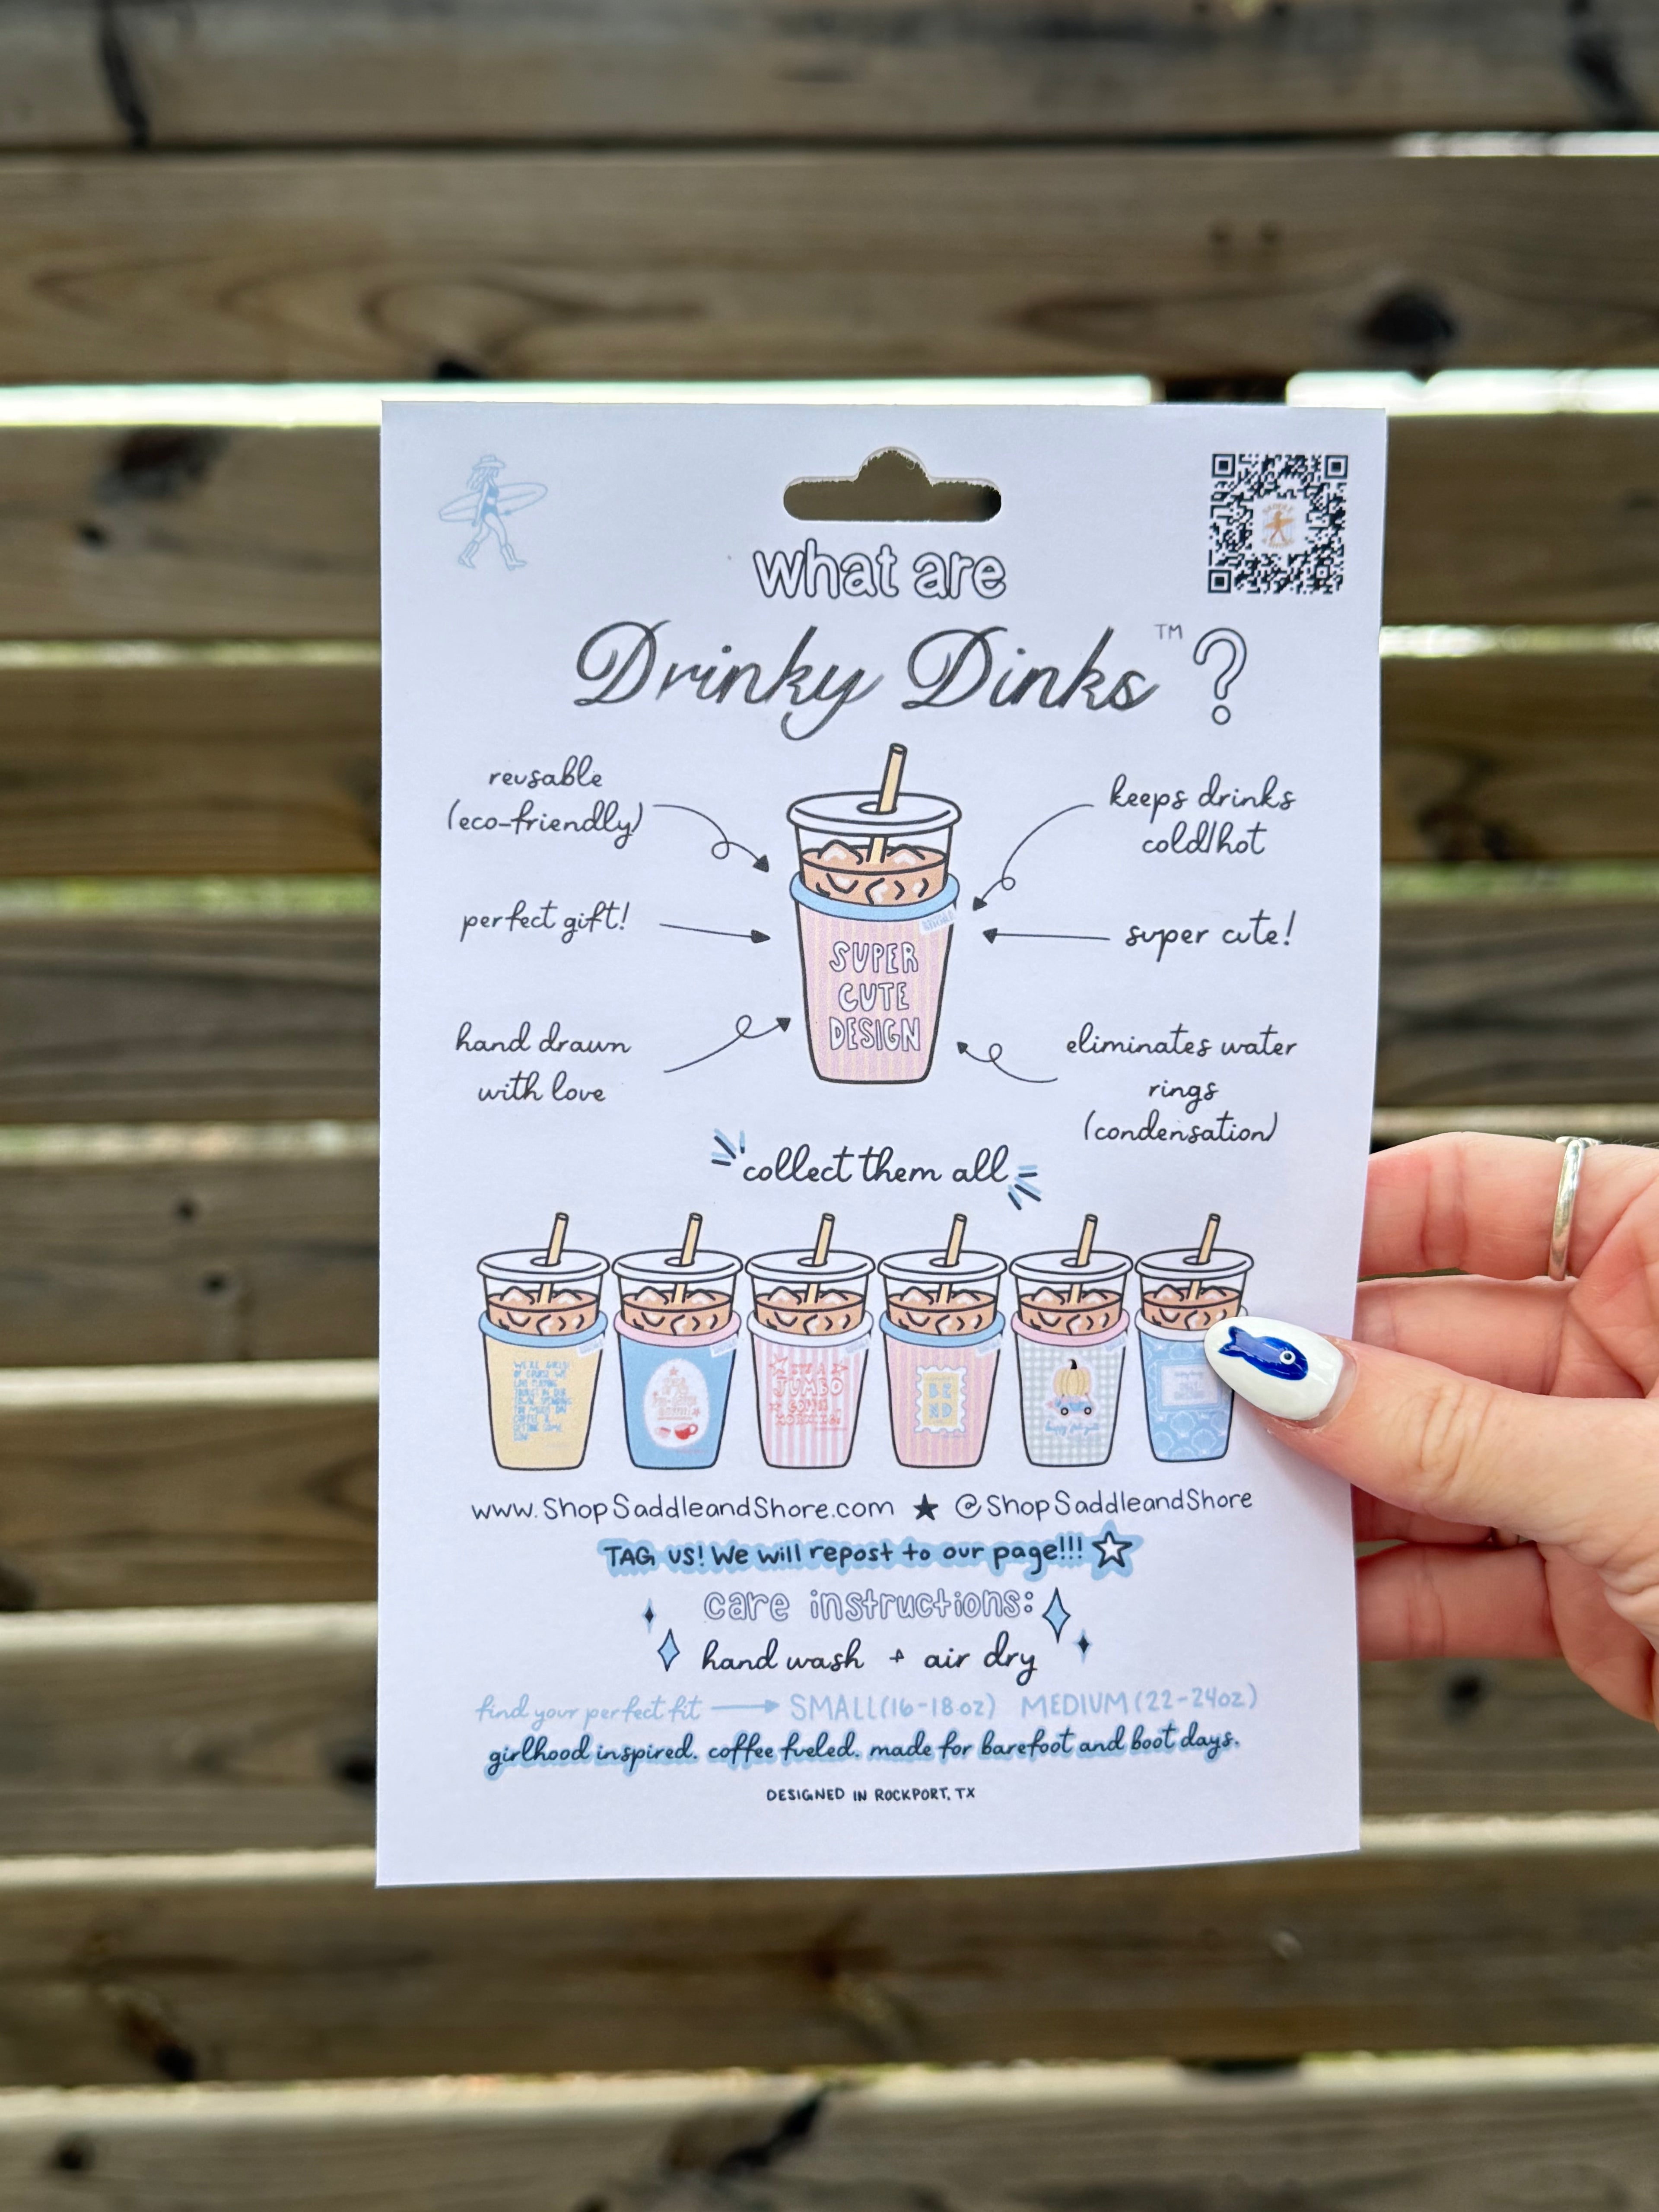 what are
Drinky Dinks™?
reusable
(eco-friendly)
keeps drinks
cold/hot
perfect gift!
super cute!
SUPER
CUTE
DESIGN
hand drawn
with love
eliminates water
rings
(condensation)
collect them all
IT'S A
JUMBO
COFFEE
BE
ND
www.ShopSaddleandShore.com ★ @ShopSaddleandShore
TAG US! We will repost to our page!!!
care instructions:
hand wash + air dry
find your perfect fit → SMALL(16-18oz) MEDIUM(22-24oz)
girlhood inspired. coffee fueled. made for barefoot and boot days.
DESIGNED IN ROCKPORT, TX